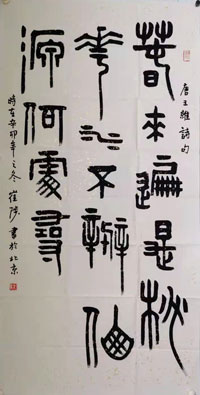 唐王維詩句
春來遍是桃
華水不辨仙
源何處尋
時在辛卯年之冬 崔陟 書於北京